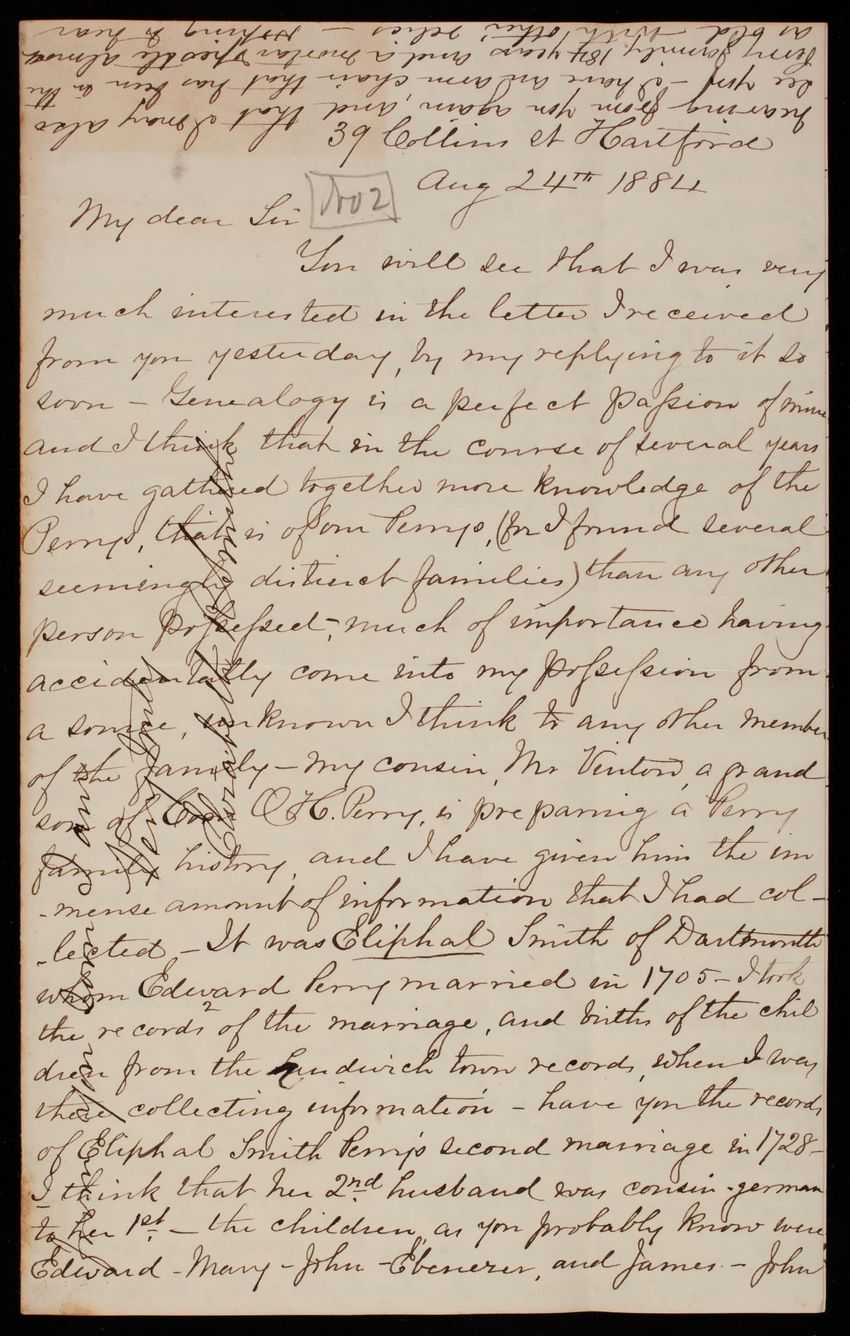 39 Collins st Hartford
Aug 24th 1884
No 2
My dear Sir
You will see that I was very
much interested in the letter I received
from you yesterday, by my replying to it so
soon - Genealogy is a perfect passion of mine
and I think that in the course of several years
I have gathered together more knowledge of the
Perrys, that is of our Perrys, (for I found several
seemingly distinct families) than any other
person possessed -, much of importance having
accidentally come into my possession from
a source, unknown I think to any other member
of the family - My cousin, Mr Vinton, a grand
son of Com O H. Perry, is preparing a Perry
family history, and I have given him the im
-mense amount of information that I had col-
-lected - It was Eliphal Smith of Dartmouth
whom Edward Perry married in 1705 - I took
the records of the marriage, and births of the chil
dren from the Sandwich town records, when I was
there collecting information - have you the records
of Eliphal Smith Perry's second marriage in 1728 -
I think that her 2nd husband was cousin-german
to her 1st - the children, as you probably know were
Edward - Mary - John - Ebenezer, and James - John
hearing from you again, and that I may also
see you - I have an arm chair that has been in the
Perry family 184 years and a mortar & pestle almost
as old - with other relics - Hoping to hear